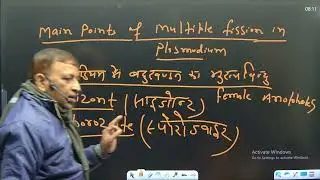 08:11
Main Points of multiple fission in
Plasmodium
में बहुखण्डन के मुख्य बिन्दु
female Anopheles
zont (साइजोन्ट)
horozoite (स्पोरोजोइट)
Activate Windows
Go to Settings to activate Windows.